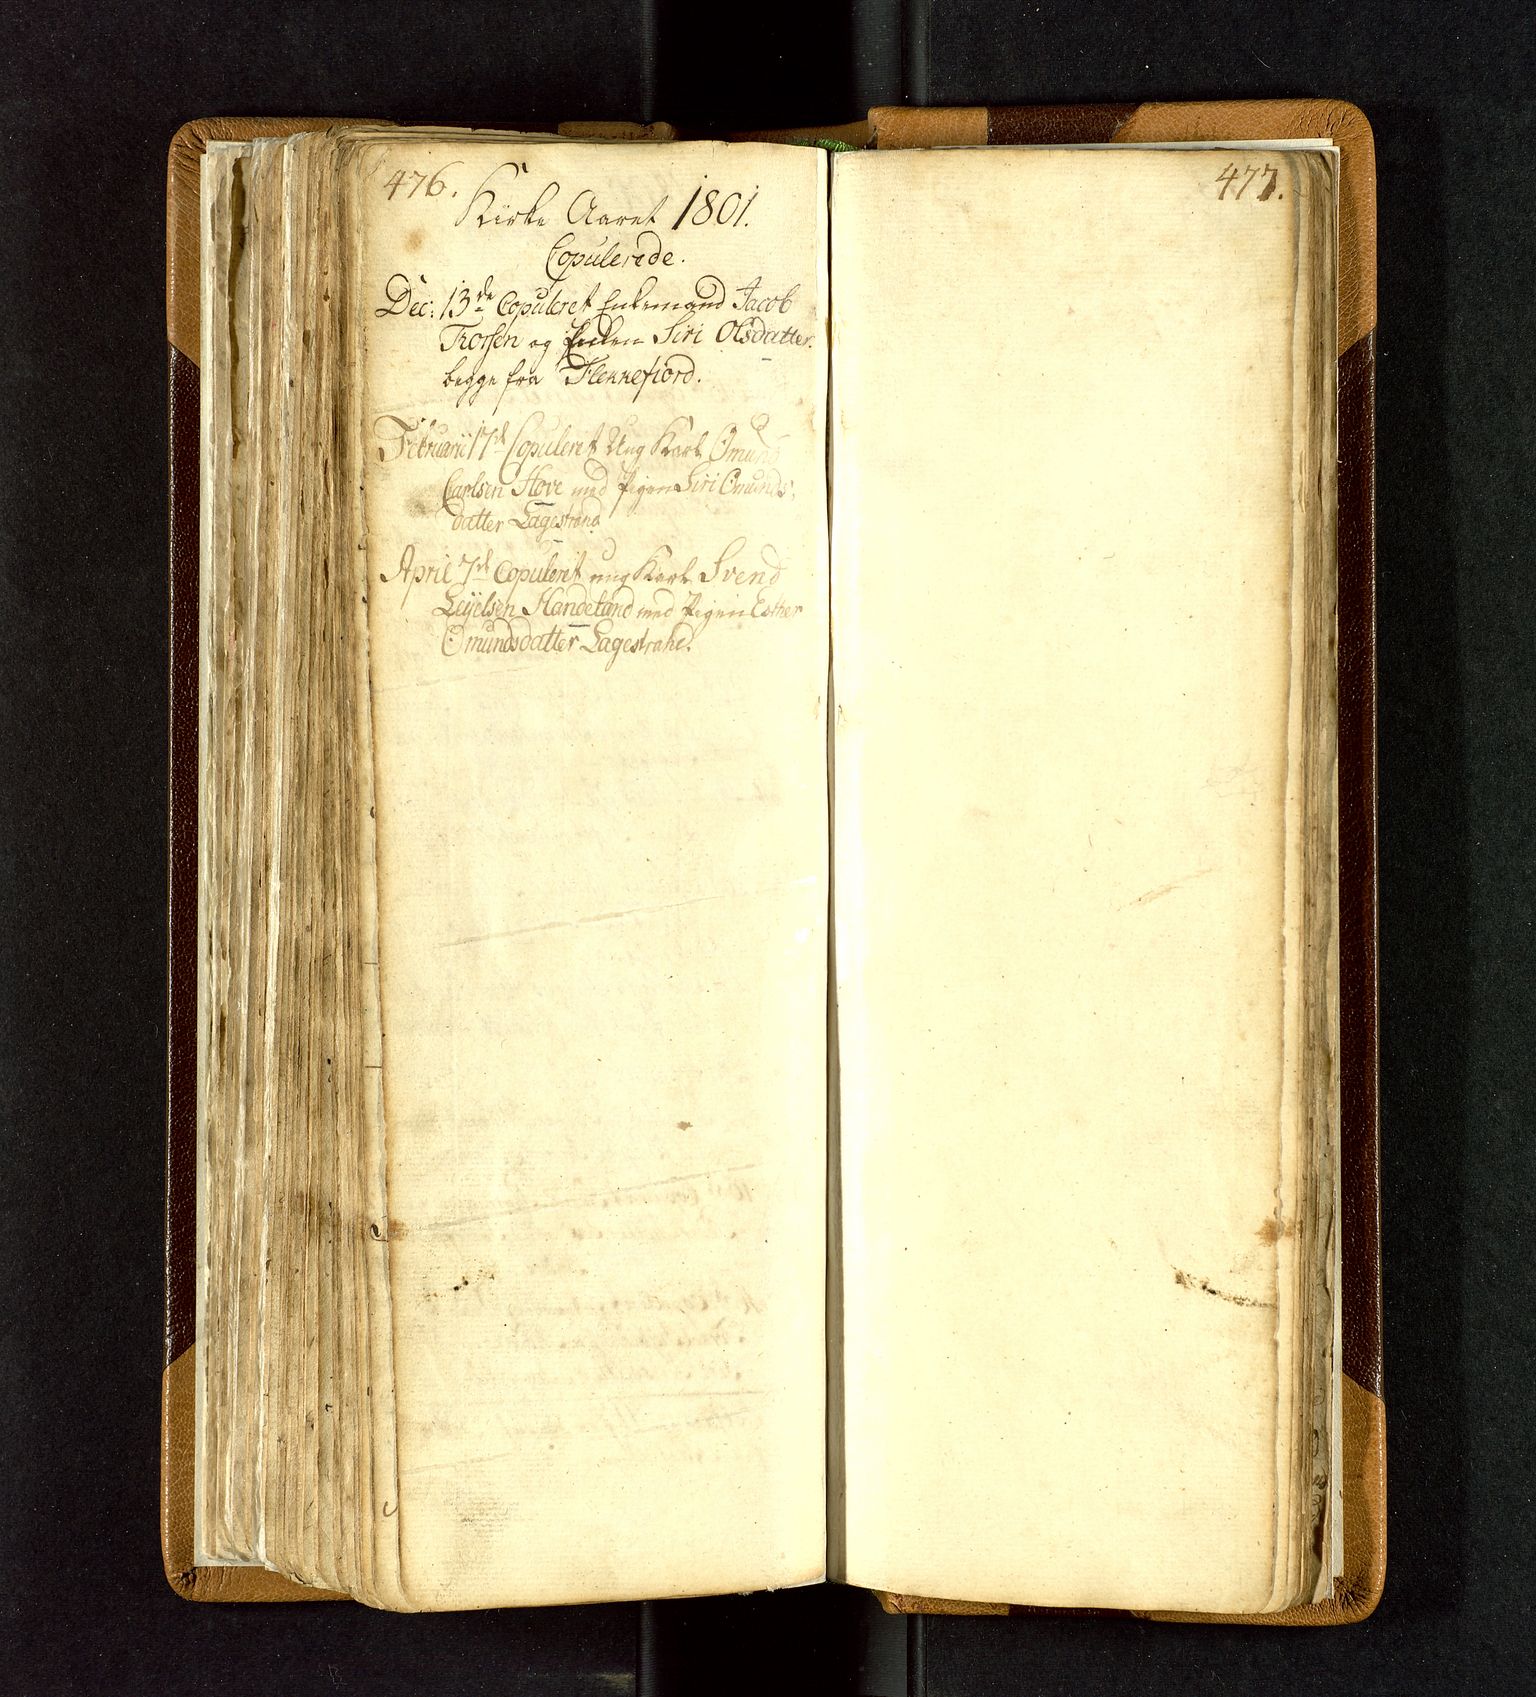 476.
Kirke Aaret 1801.
Copulerede.
Dec: 13de Copuleret Enkemand Jacob
Trorsen og Enken Siri Olsdatter
begge fra Flekkefiord.
Februarii 17de Copuleret Ung Karl Omund
Carlsen Hove med Pigen Siri Omunds-
datter Lagestrand
April 7de Copuleret ung Karl Svend
Handeland med Pigen Esther
Omundsdatter Lagestrand.
477.